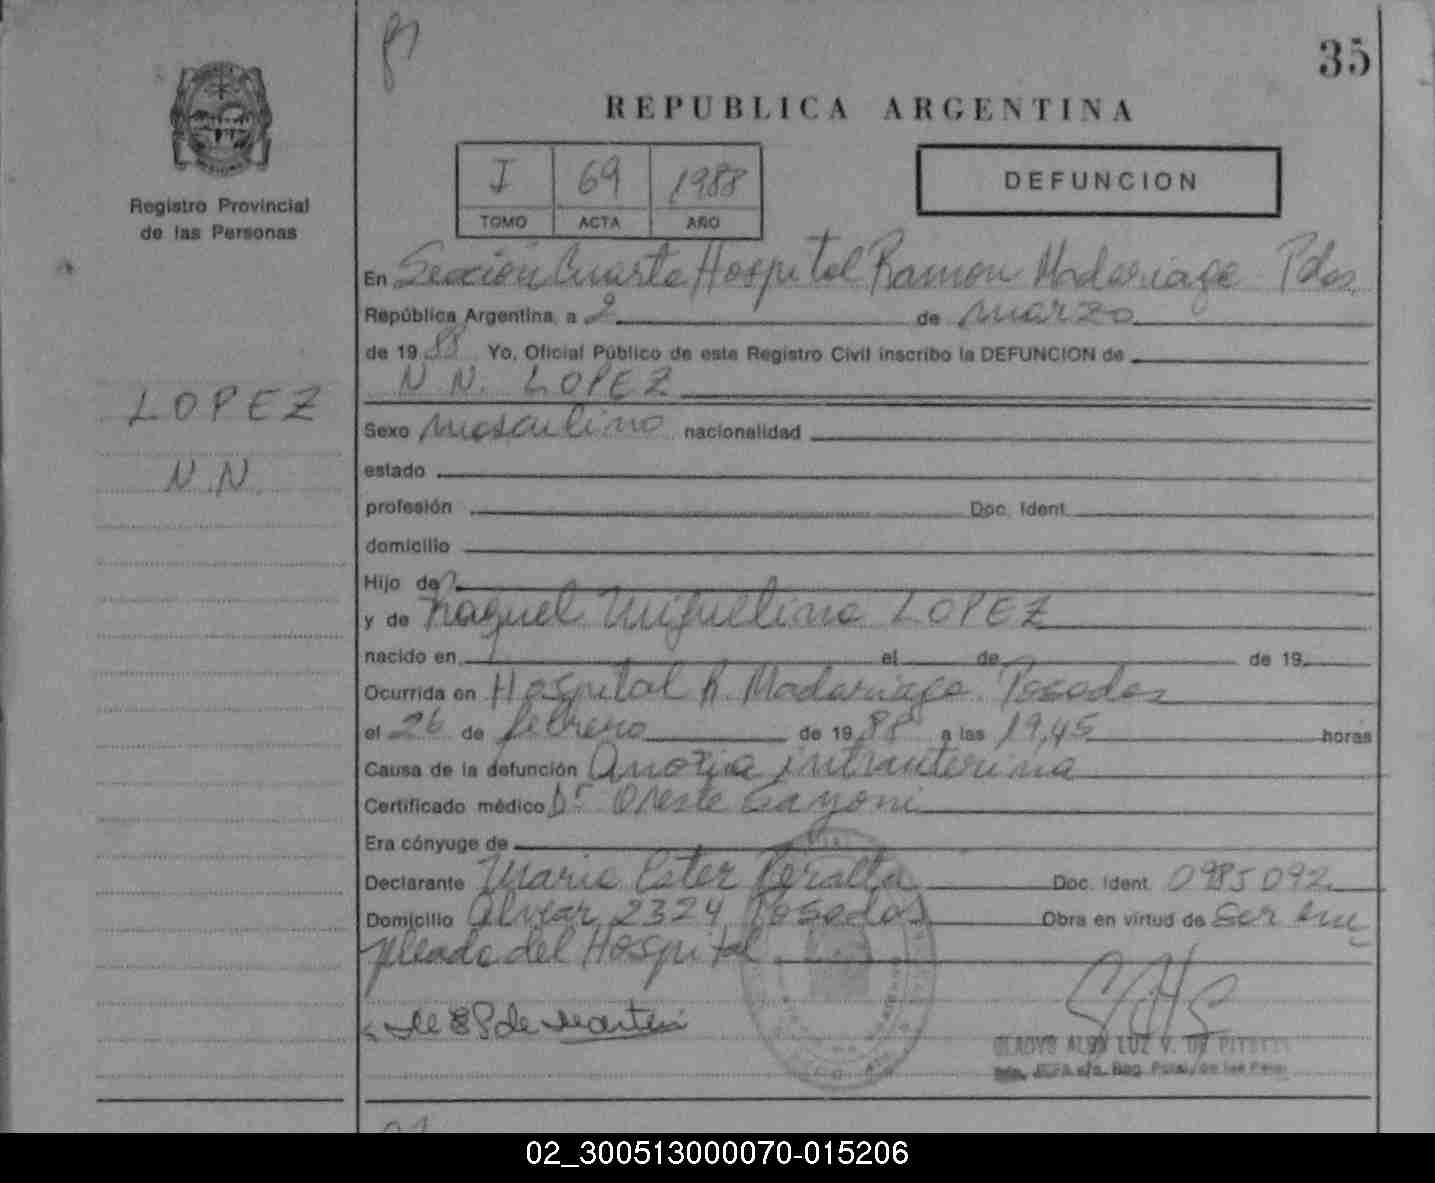 35
REPUBLICA ARGENTINA
Registro Provincial
de las Personas
I 69 1988
TOMO ACTA AÑO
DEFUNCION
En Sección Cuarta Hospital Ramon Madariaga Pdas
República Argentina, a 2 de marzo
de 1988 Yo, Oficial Público de este Registro Civil inscribo la DEFUNCION de
N N. LOPEZ
LOPEZ
N.N.
Sexo masculino nacionalidad
estado
profesión Doc. Ident.
domicilio
Hijo de
y de Raquel Miguelina LOPEZ
nacido en el de de 19
Ocurrida en Hospital R. Madariaga Posadas
el 26 de febrero de 1988 a las 19,45 horas
Causa de la defunción Anoxia intrauterina
Certificado médico Dr Oreste
Era cónyuge de
Declarante Maria Ester Peralta Doc. Ident. 0985092
Domicilio Alvear 2324 Posadas Obra en virtud de ser em
pleada del Hospital
GLADYS LUZ V. DE
02_300513000070-015206